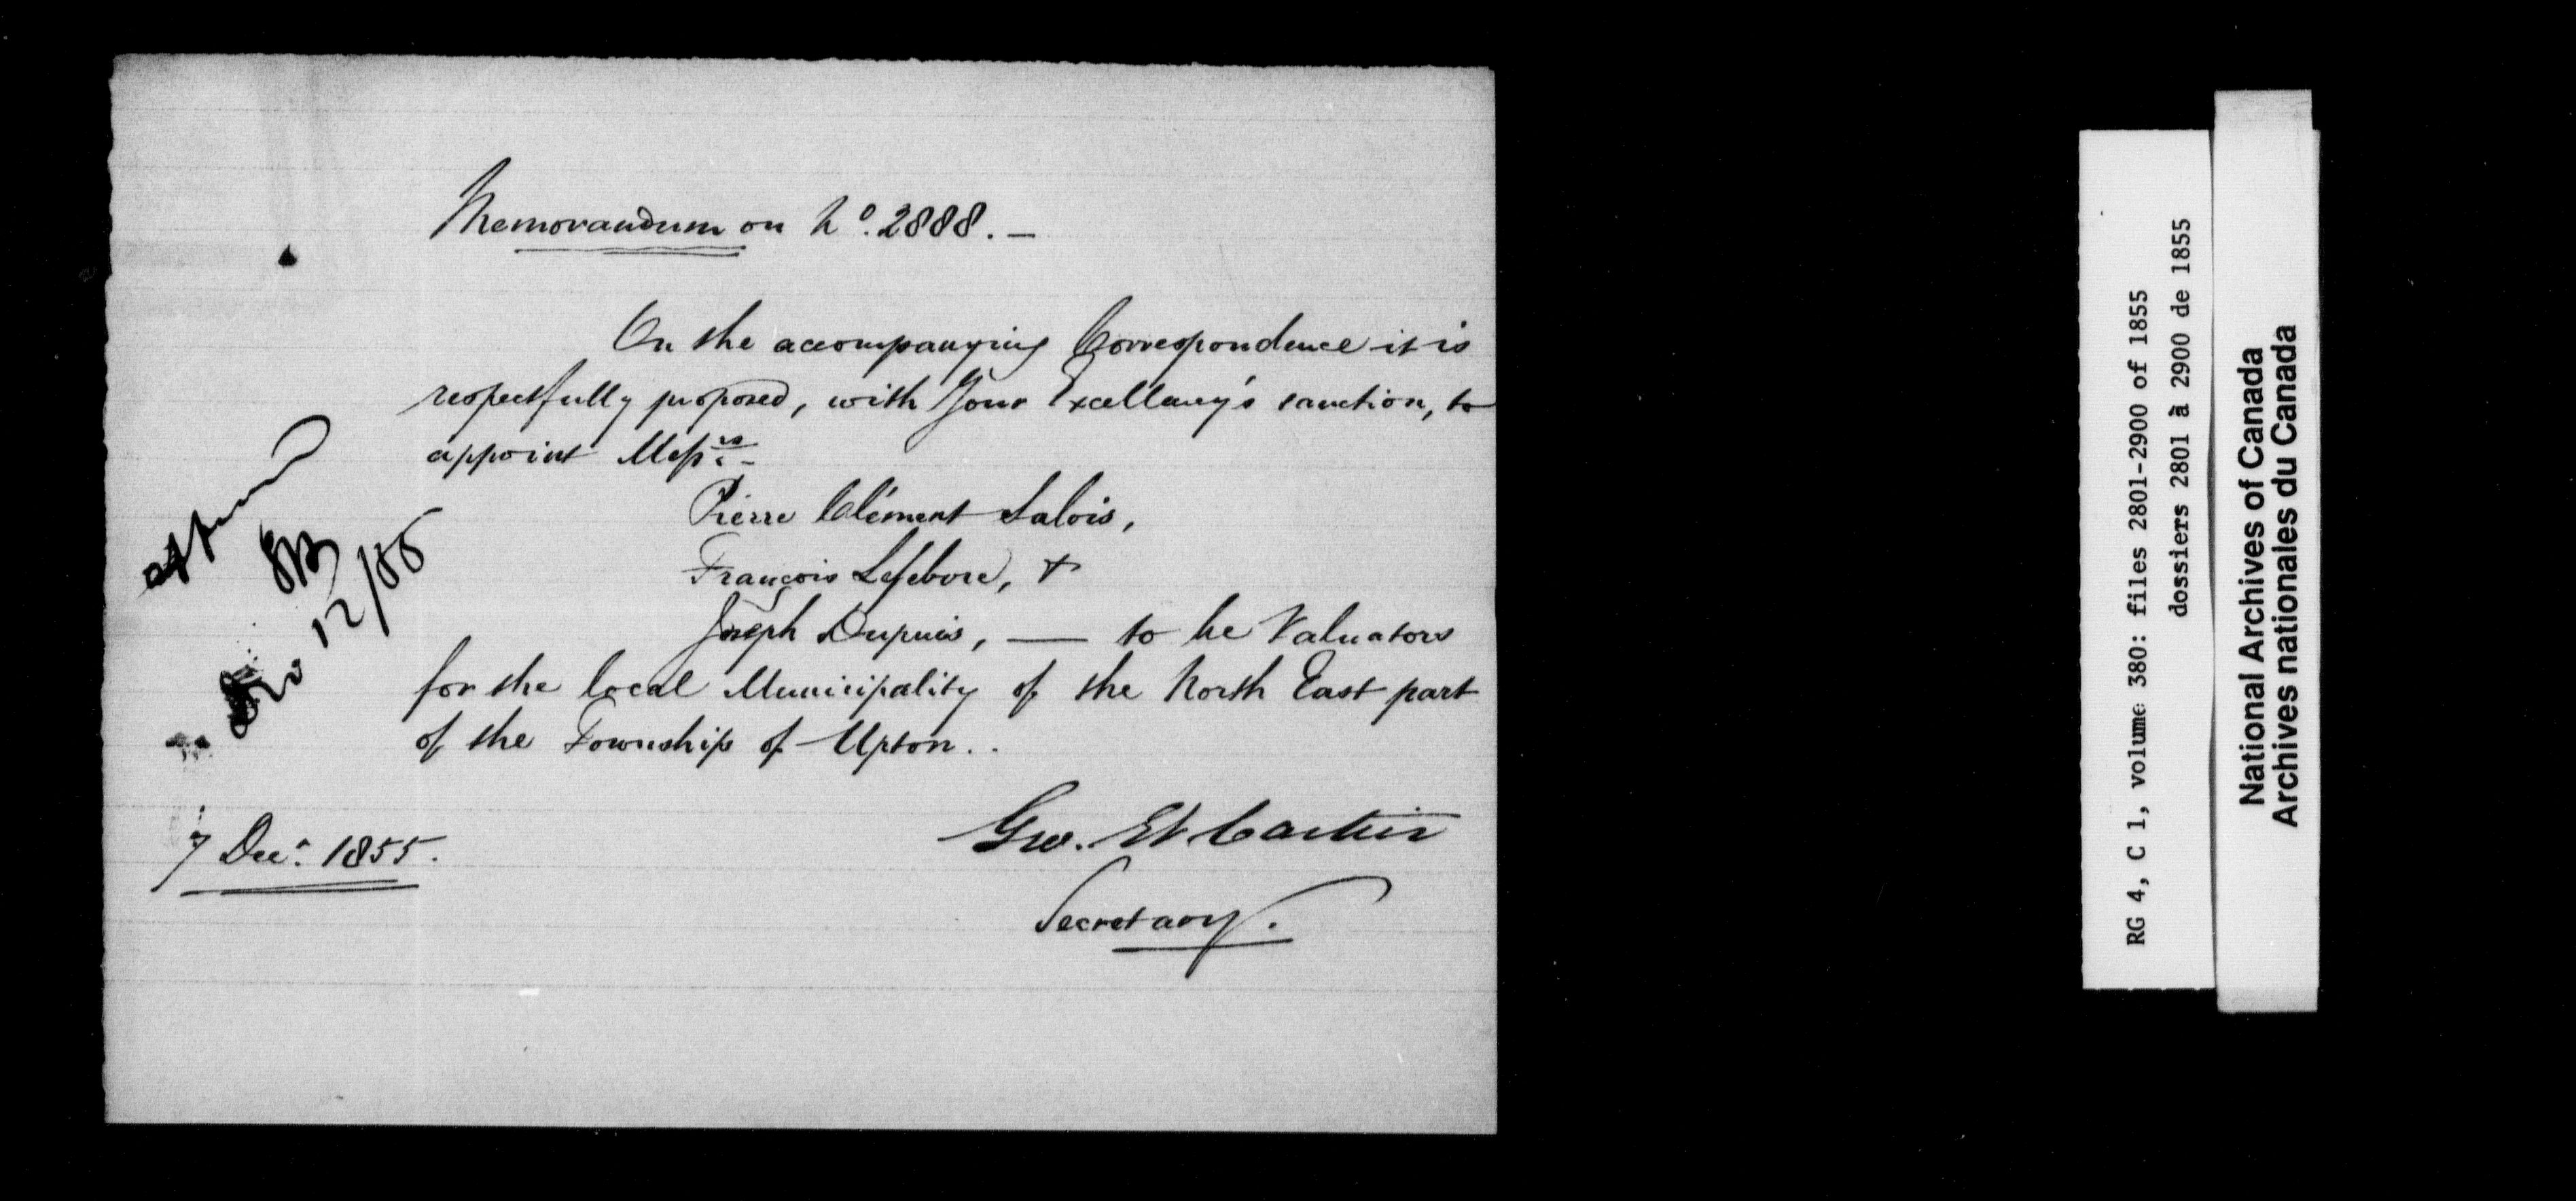 Memorandum on No. 2888. —
On the accompanying Correspondence it is
respectfully proposed, with Your Excellency's sanction, to
appoint Messrs. -
Pierre Clément Salois,
François Lefebvre, &
Joseph Dupuis, — to be Valuators
for the local Municipality of the North East part
of the Township of Upton..
7 Dec. 1855.
Geo. Et. Cartier
Secretary.
12/55
RG 4, C 1, volume 380: files 2801-2900 of 1855
dossiers 2801 à 2900 de 1855
National Archives of Canada
Archives nationales du Canada